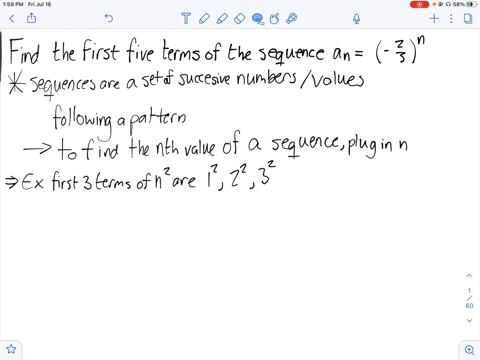 1:59 PM Fri Jul 16
58%
Find the first five terms of the sequence aₙ = (-2/3)ⁿ
* sequences are a set of succesive numbers/values
following a pattern
→ to find the nth value of a sequence, plug in n
⇒ Ex first 3 terms of n² are 1², 2², 3²
1
/
60